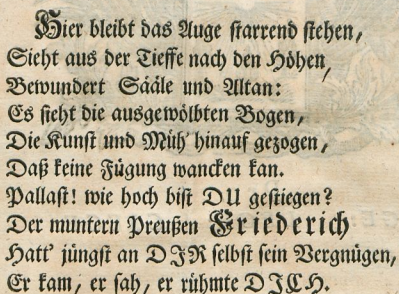 Hier bleibt das Auge starrend stehen,
Sieht aus der Tieffe nach den Höhen,
Bewundert Sääle und Altan:
Es sieht die ausgewölbten Bogen,
Die Kunst und Müh' hinauf gezogen,
Daß keine Fügung wancken kan.
Pallast! wie hoch bist DU gestiegen?
Der muntern Preußen Friederich
Hatt' jüngst an DIR selbst sein Vergnügen,
Er kam, er sah, er rühmte DICH.